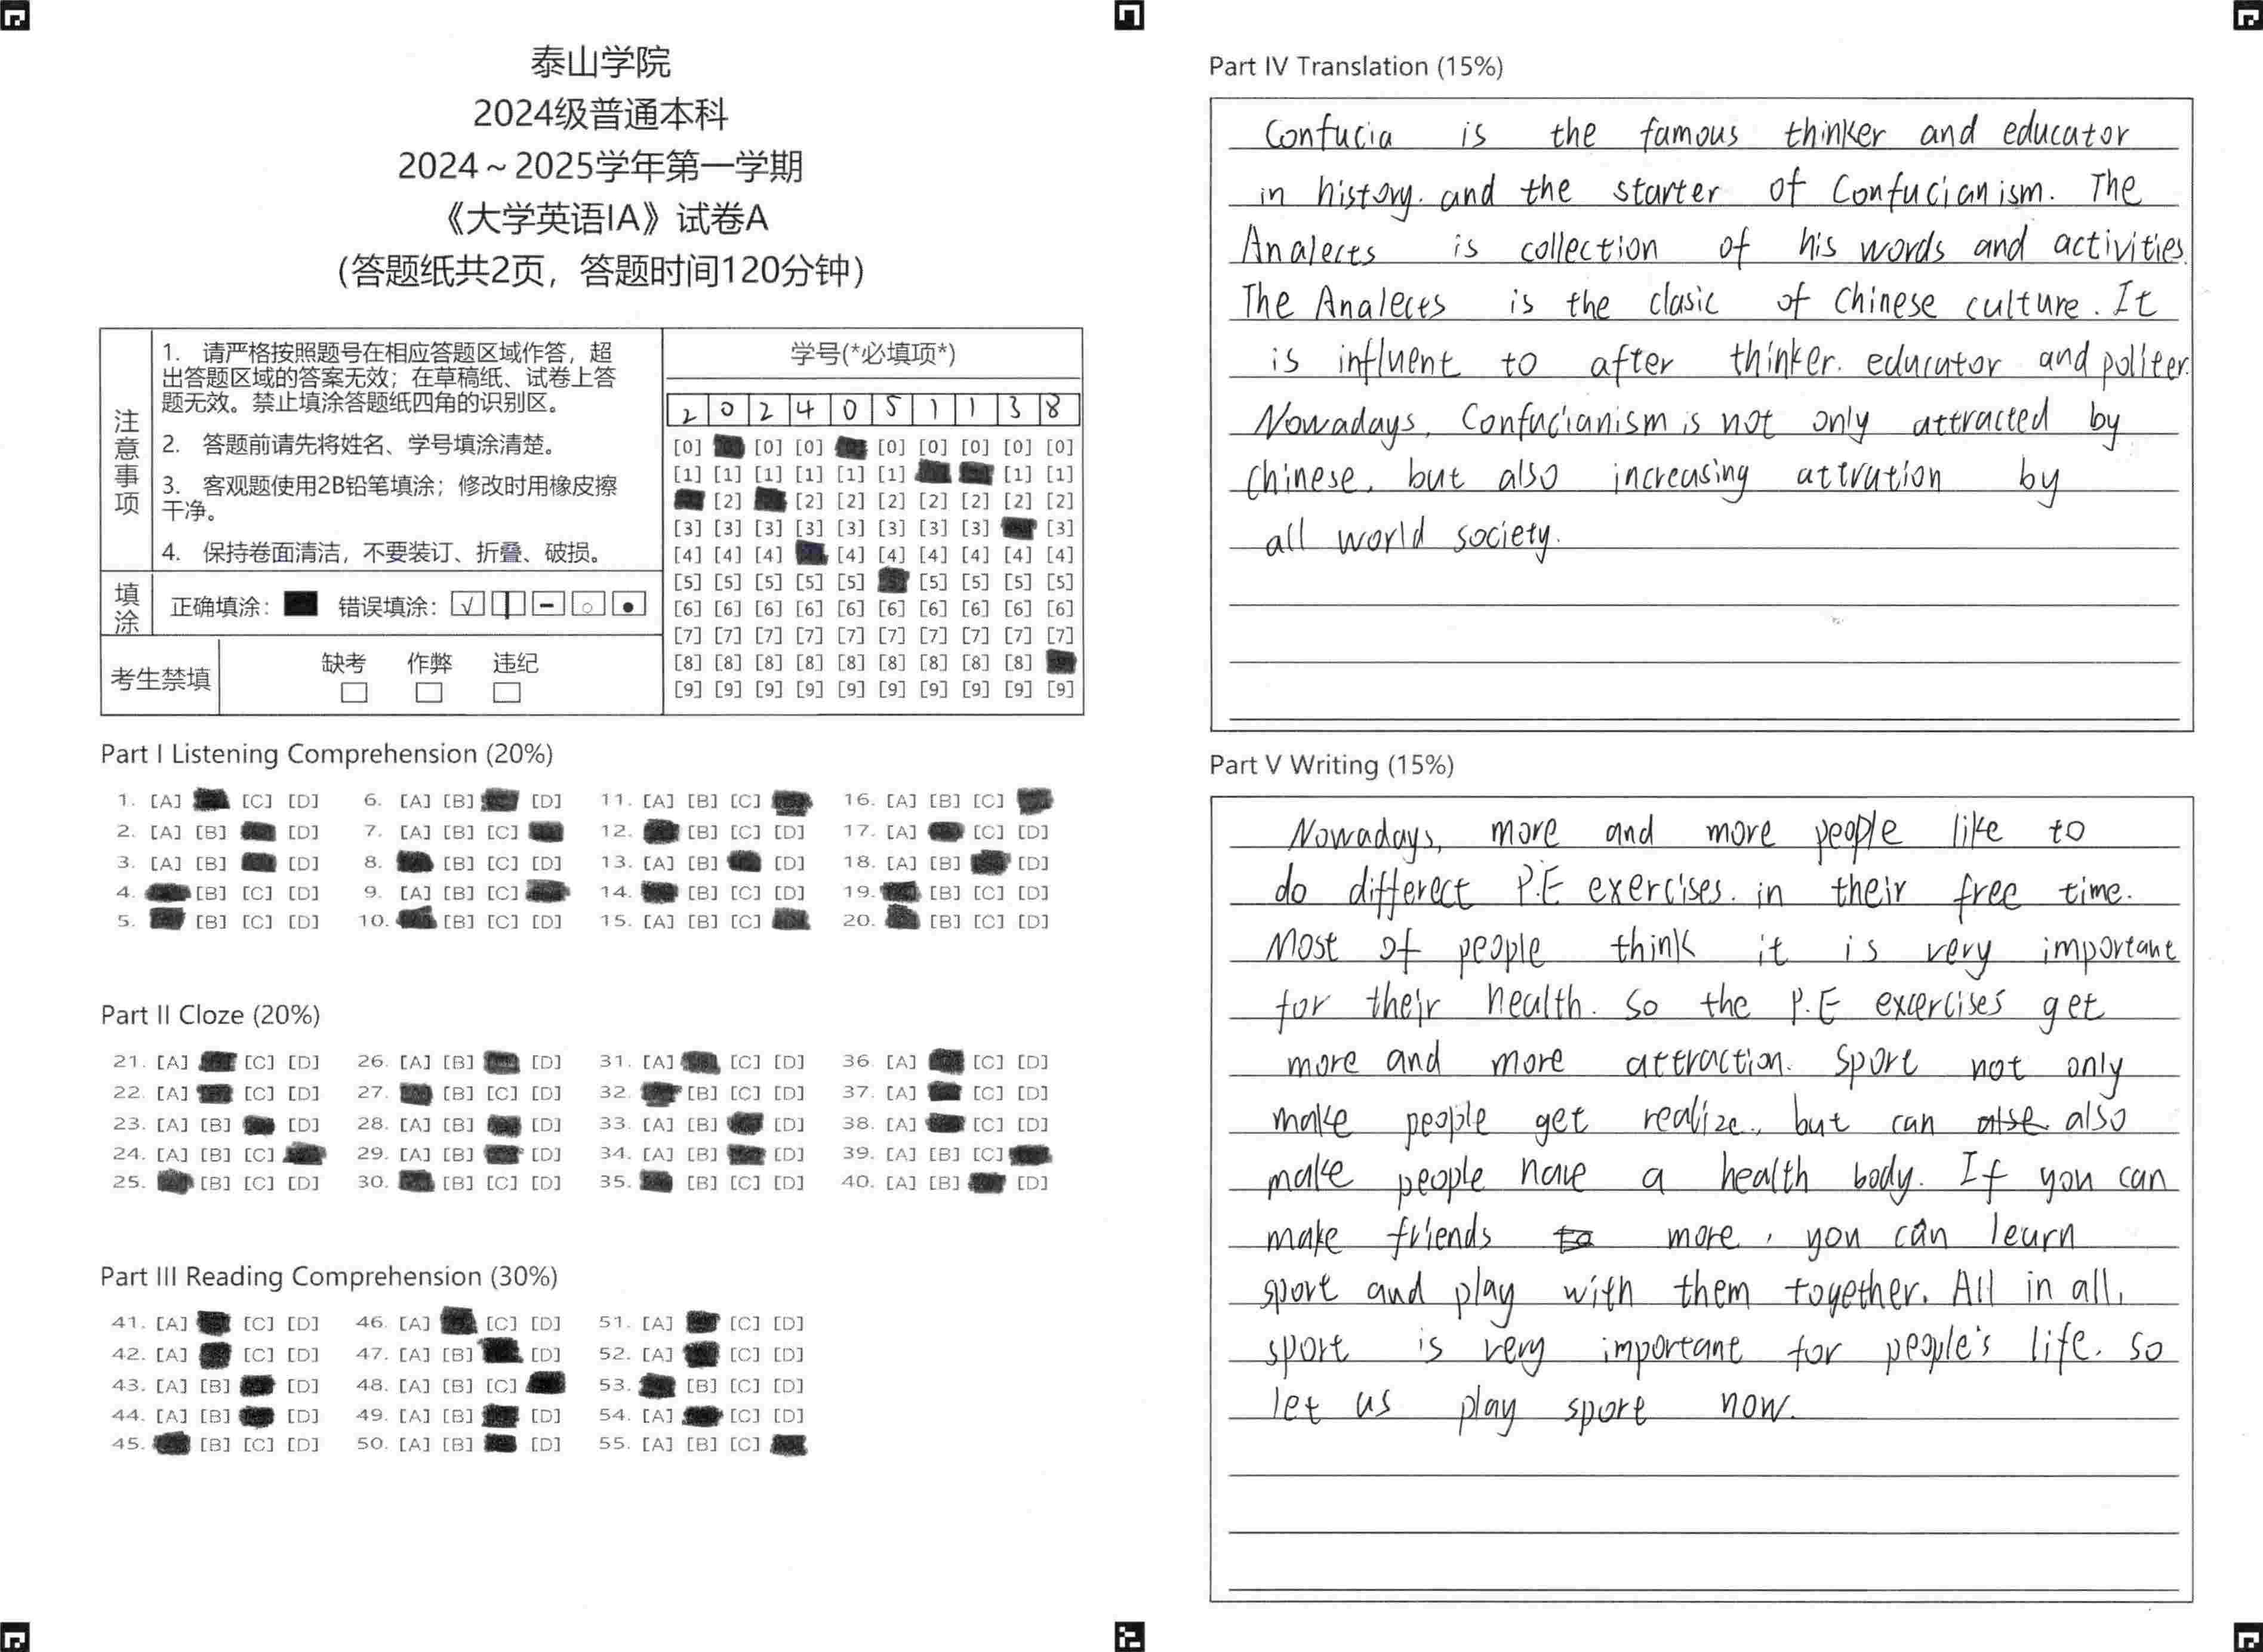 泰山学院
2024级普通本科
2024～2025学年第一学期
《大学英语IA》试卷A
(答题纸共2页，答题时间120分钟)
注意事项
1. 请严格按照题号在相应答题区域作答，超
出答题区域的答案无效；在草稿纸、试卷上答
题无效。禁止填涂答题纸四角的识别区。
2. 答题前请先将姓名、学号填涂清楚。
3. 客观题使用2B铅笔填涂；修改时用橡皮擦
干净。
4. 保持卷面清洁，不要装订、折叠、破损。
填涂
正确填涂： 错误填涂：
考生禁填
缺考 作弊 违纪
学号(*必填项*)
2 0 2 4 0 5 1 1 3 8
[0] [0] [0] [0] [0] [0] [0] [0]
[1] [1] [1] [1] [1] [1] [1] [1]
[2] [2] [2] [2] [2] [2] [2] [2]
[3] [3] [3] [3] [3] [3] [3] [3] [3]
[4] [4] [4] [4] [4] [4] [4] [4] [4]
[5] [5] [5] [5] [5] [5] [5] [5] [5]
[6] [6] [6] [6] [6] [6] [6] [6] [6] [6]
[7] [7] [7] [7] [7] [7] [7] [7] [7] [7]
[8] [8] [8] [8] [8] [8] [8] [8] [8]
[9] [9] [9] [9] [9] [9] [9] [9] [9] [9]
Part I Listening Comprehension (20%)
1. [A] [C] [D] 6. [A] [B] [D] 11. [A] [B] [C] 16. [A] [B] [C]
2. [A] [B] [D] 7. [A] [B] [C] 12. [B] [C] [D] 17. [A] [C] [D]
3. [A] [B] [D] 8. [B] [C] [D] 13. [A] [B] [D] 18. [A] [B] [D]
4. [B] [C] [D] 9. [A] [B] [C] 14. [B] [C] [D] 19. [B] [C] [D]
5. [B] [C] [D] 10. [B] [C] [D] 15. [A] [B] [C] 20. [B] [C] [D]
Part II Cloze (20%)
21. [A] [C] [D] 26. [A] [B] [D] 31. [A] [C] [D] 36. [A] [C] [D]
22. [A] [C] [D] 27. [B] [C] [D] 32. [B] [C] [D] 37. [A] [C] [D]
23. [A] [B] [D] 28. [A] [B] [D] 33. [A] [B] [D] 38. [A] [C] [D]
24. [A] [B] [C] 29. [A] [B] [D] 34. [A] [B] [D] 39. [A] [B] [C]
25. [B] [C] [D] 30. [B] [C] [D] 35. [B] [C] [D] 40. [A] [B] [D]
Part III Reading Comprehension (30%)
41. [A] [C] [D] 46. [A] [C] [D] 51. [A] [C] [D]
42. [A] [C] [D] 47. [A] [B] [D] 52. [A] [C] [D]
43. [A] [B] [D] 48. [A] [B] [C] 53. [B] [C] [D]
44. [A] [B] [D] 49. [A] [B] [D] 54. [A] [C] [D]
45. [B] [C] [D] 50. [A] [B] [D] 55. [A] [B] [C]
Part IV Translation (15%)
Confucia is the famous thinker and educator
in history. and the starter of Confucianism. The
Analects is collection of his words and activities.
The Analects is the clasic of Chinese culture. It
is influent to after thinker. educator and politer.
Nowadays, Confucianism is not only attracted by
Chinese, but also increasing attration by
all world society.
Part V Writing (15%)
Nowadays, more and more people like to
do differect P.E exercises. in their free time.
Most of people think it is very important
for their health. So the P.E excercises get
more and more attraction. Sport not only
make people get realize, but can also
make people have a health body. If you can
make friends more, you can learn
sport and play with them together. All in all,
sport is very important for people's life. so
let us play sport now.